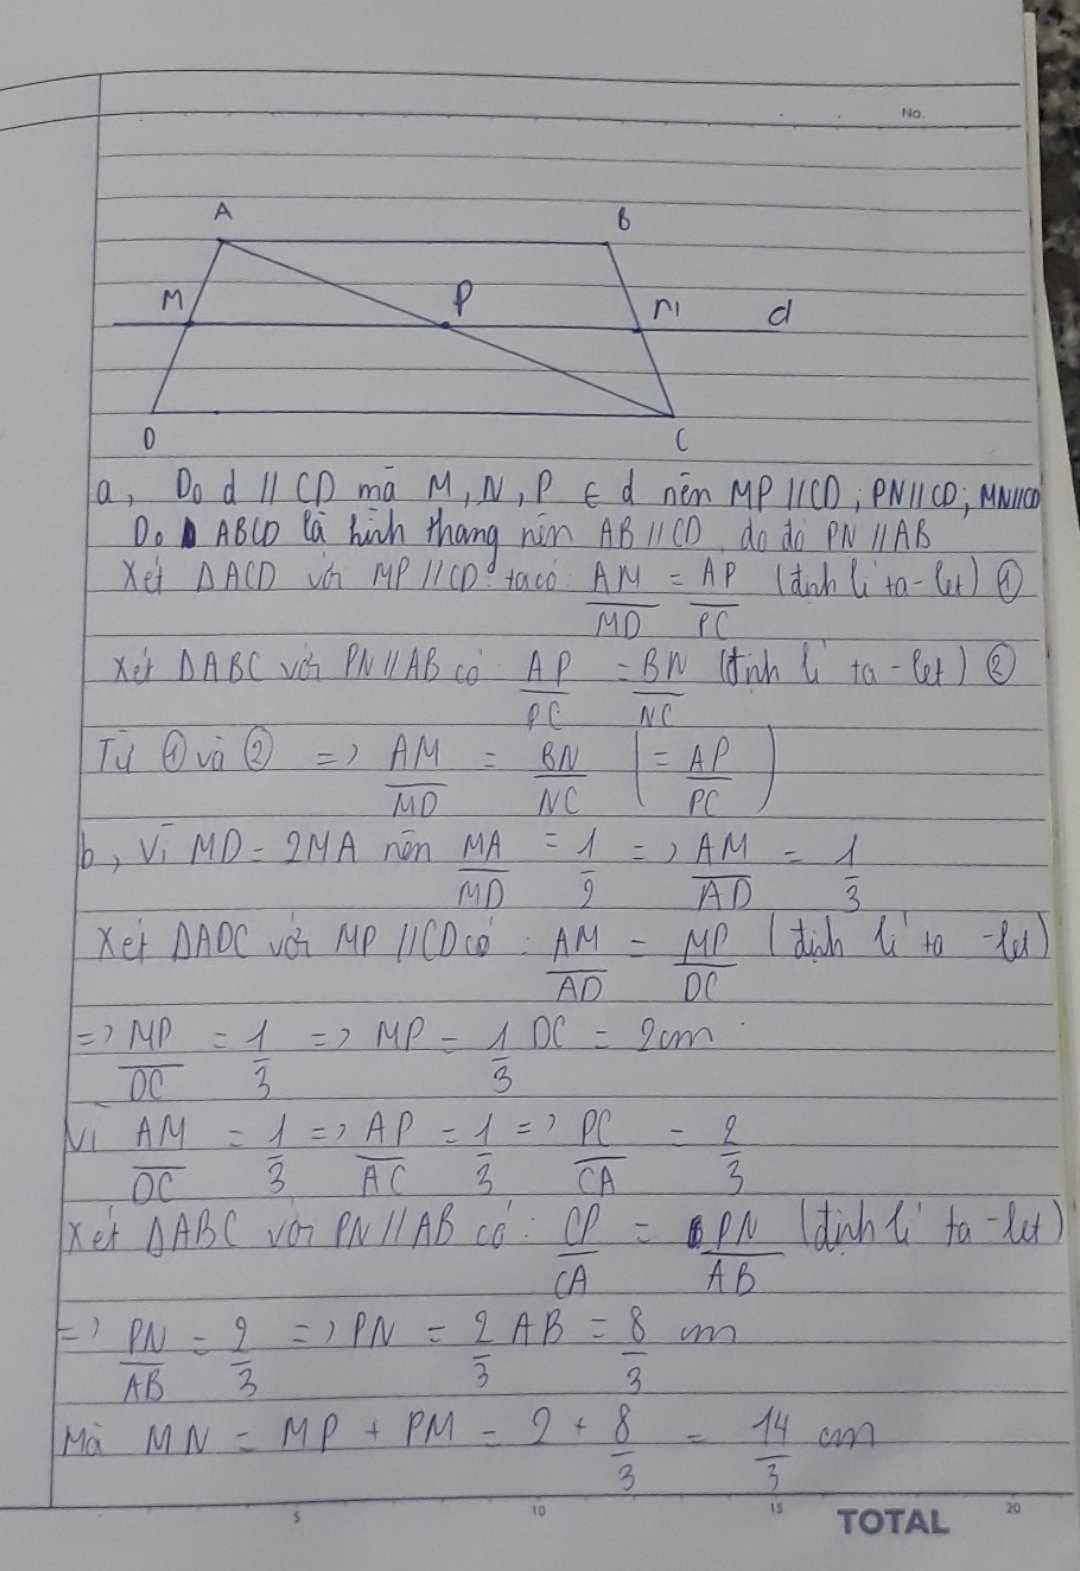 No.
A
B
M
P
N
d
D
C
a, Do d // CD mà M, N, P ∈ d nên MP // CD ; PN // CD ; MN // CD
Do ABCD là hình thang nên AB // CD do đó PN // AB
Xét ΔACD với MP // CD ta có: AM/MD = AP/PC (định lí ta-let) ①
Xét ΔABC với PN // AB có AP/PC = BN/NC (định lí ta-let) ②
Từ ① và ② => AM/MD = BN/NC (= AP/PC)
b, Vì MD = 2MA nên MA/MD = 1/2 => AM/AD = 1/3
Xét ΔADC với MP // CD có: AM/AD = MP/DC (định lí ta-let)
=> MP/DC = 1/3 => MP = 1/3 DC = 2cm
Vì AM/DC = 1/3 => AP/AC = 1/3 => PC/CA = 2/3
Xét ΔABC với PN // AB có: CP/CA = PN/AB (định lí ta-let)
=> PN/AB = 2/3 => PN = 2/3 AB = 8/3 cm
Mà MN = MP + PM = 2 + 8/3 = 14/3 cm
5 10 15 20
TOTAL